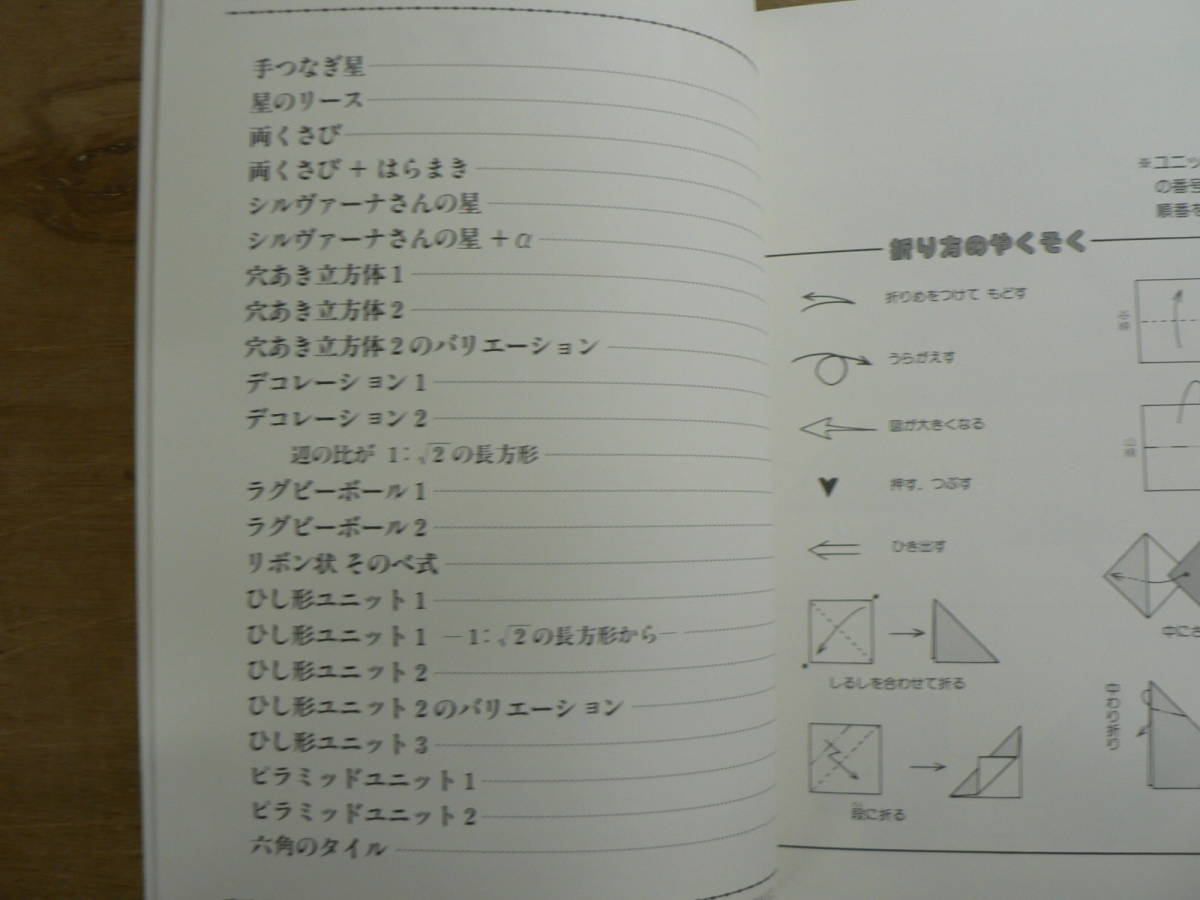 手つなぎ星
星のリース
両くさび
両くさび + はらまき
シルヴァーナさんの星
シルヴァーナさんの星 + α
穴あき立方体1
穴あき立方体2
穴あき立方体2のバリエーション
デコレーション1
デコレーション2
辺の比が 1:√2の長方形
ラグビーボール1
ラグビーボール2
リボン状 そのべ式
ひし形ユニット1
ひし形ユニット1 ―1:√2の長方形から―
ひし形ユニット2
ひし形ユニット2のバリエーション
ひし形ユニット3
ピラミッドユニット1
ピラミッドユニット2
六角のタイル
※ユニッ
の番号
順番を
折り方のやくそく
折りめをつけて もどす
うらがえす
図が大きくなる
押す、つぶす
ひき出す
しるしを合わせて折る
段に折る
谷線
山線
中に
中わり折り